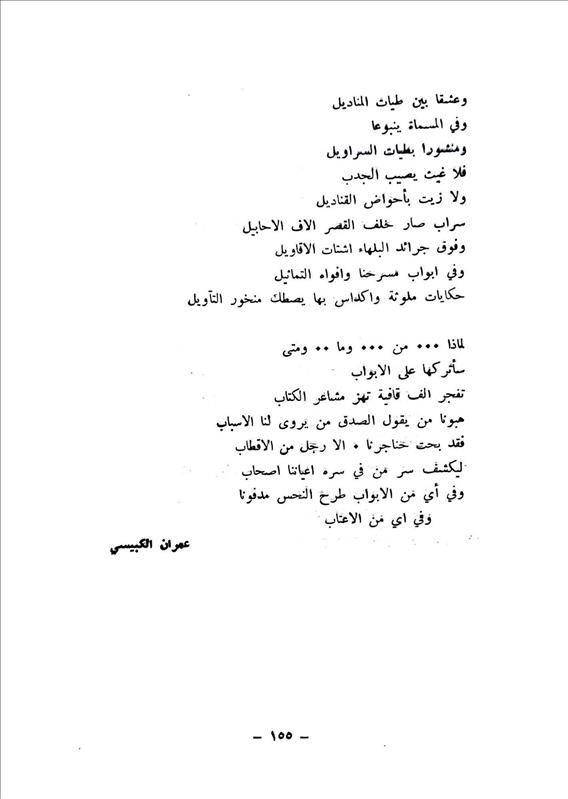 وعشقا بين طيات المناديل
وفي المسماة ينبوعا
ومنشورا بطيات السراويل
فلا غيث يصيب الجدب
ولا زيت بأحواض القناديل
سراب صار خلف القصر الاف الاحابيل
وفوق جرائد البلهاء اشتات الاقاويل
وفي ابواب مسرحنا وافواه التماثيل
حكايات ملوثة واكداس بها يصطك منخور التآويل
لماذا ۰۰۰ من ۰۰۰ وما ۰۰ ومتى
سأتركها على الابواب
تفجر الف قافية تهز مشاعر الكتاب
هبونا من يقول الصدق من يروى لنا الاسباب
فقد بحت حناجرنا ۰ الا رجل من الاقطاب
ليكشف سر من في سره اعياتنا اصحاب
وفي أي من الابواب طرح النحس مدفونا
وفي اي من الاعتاب
عمران الكبيسي
– ١٥٥ –